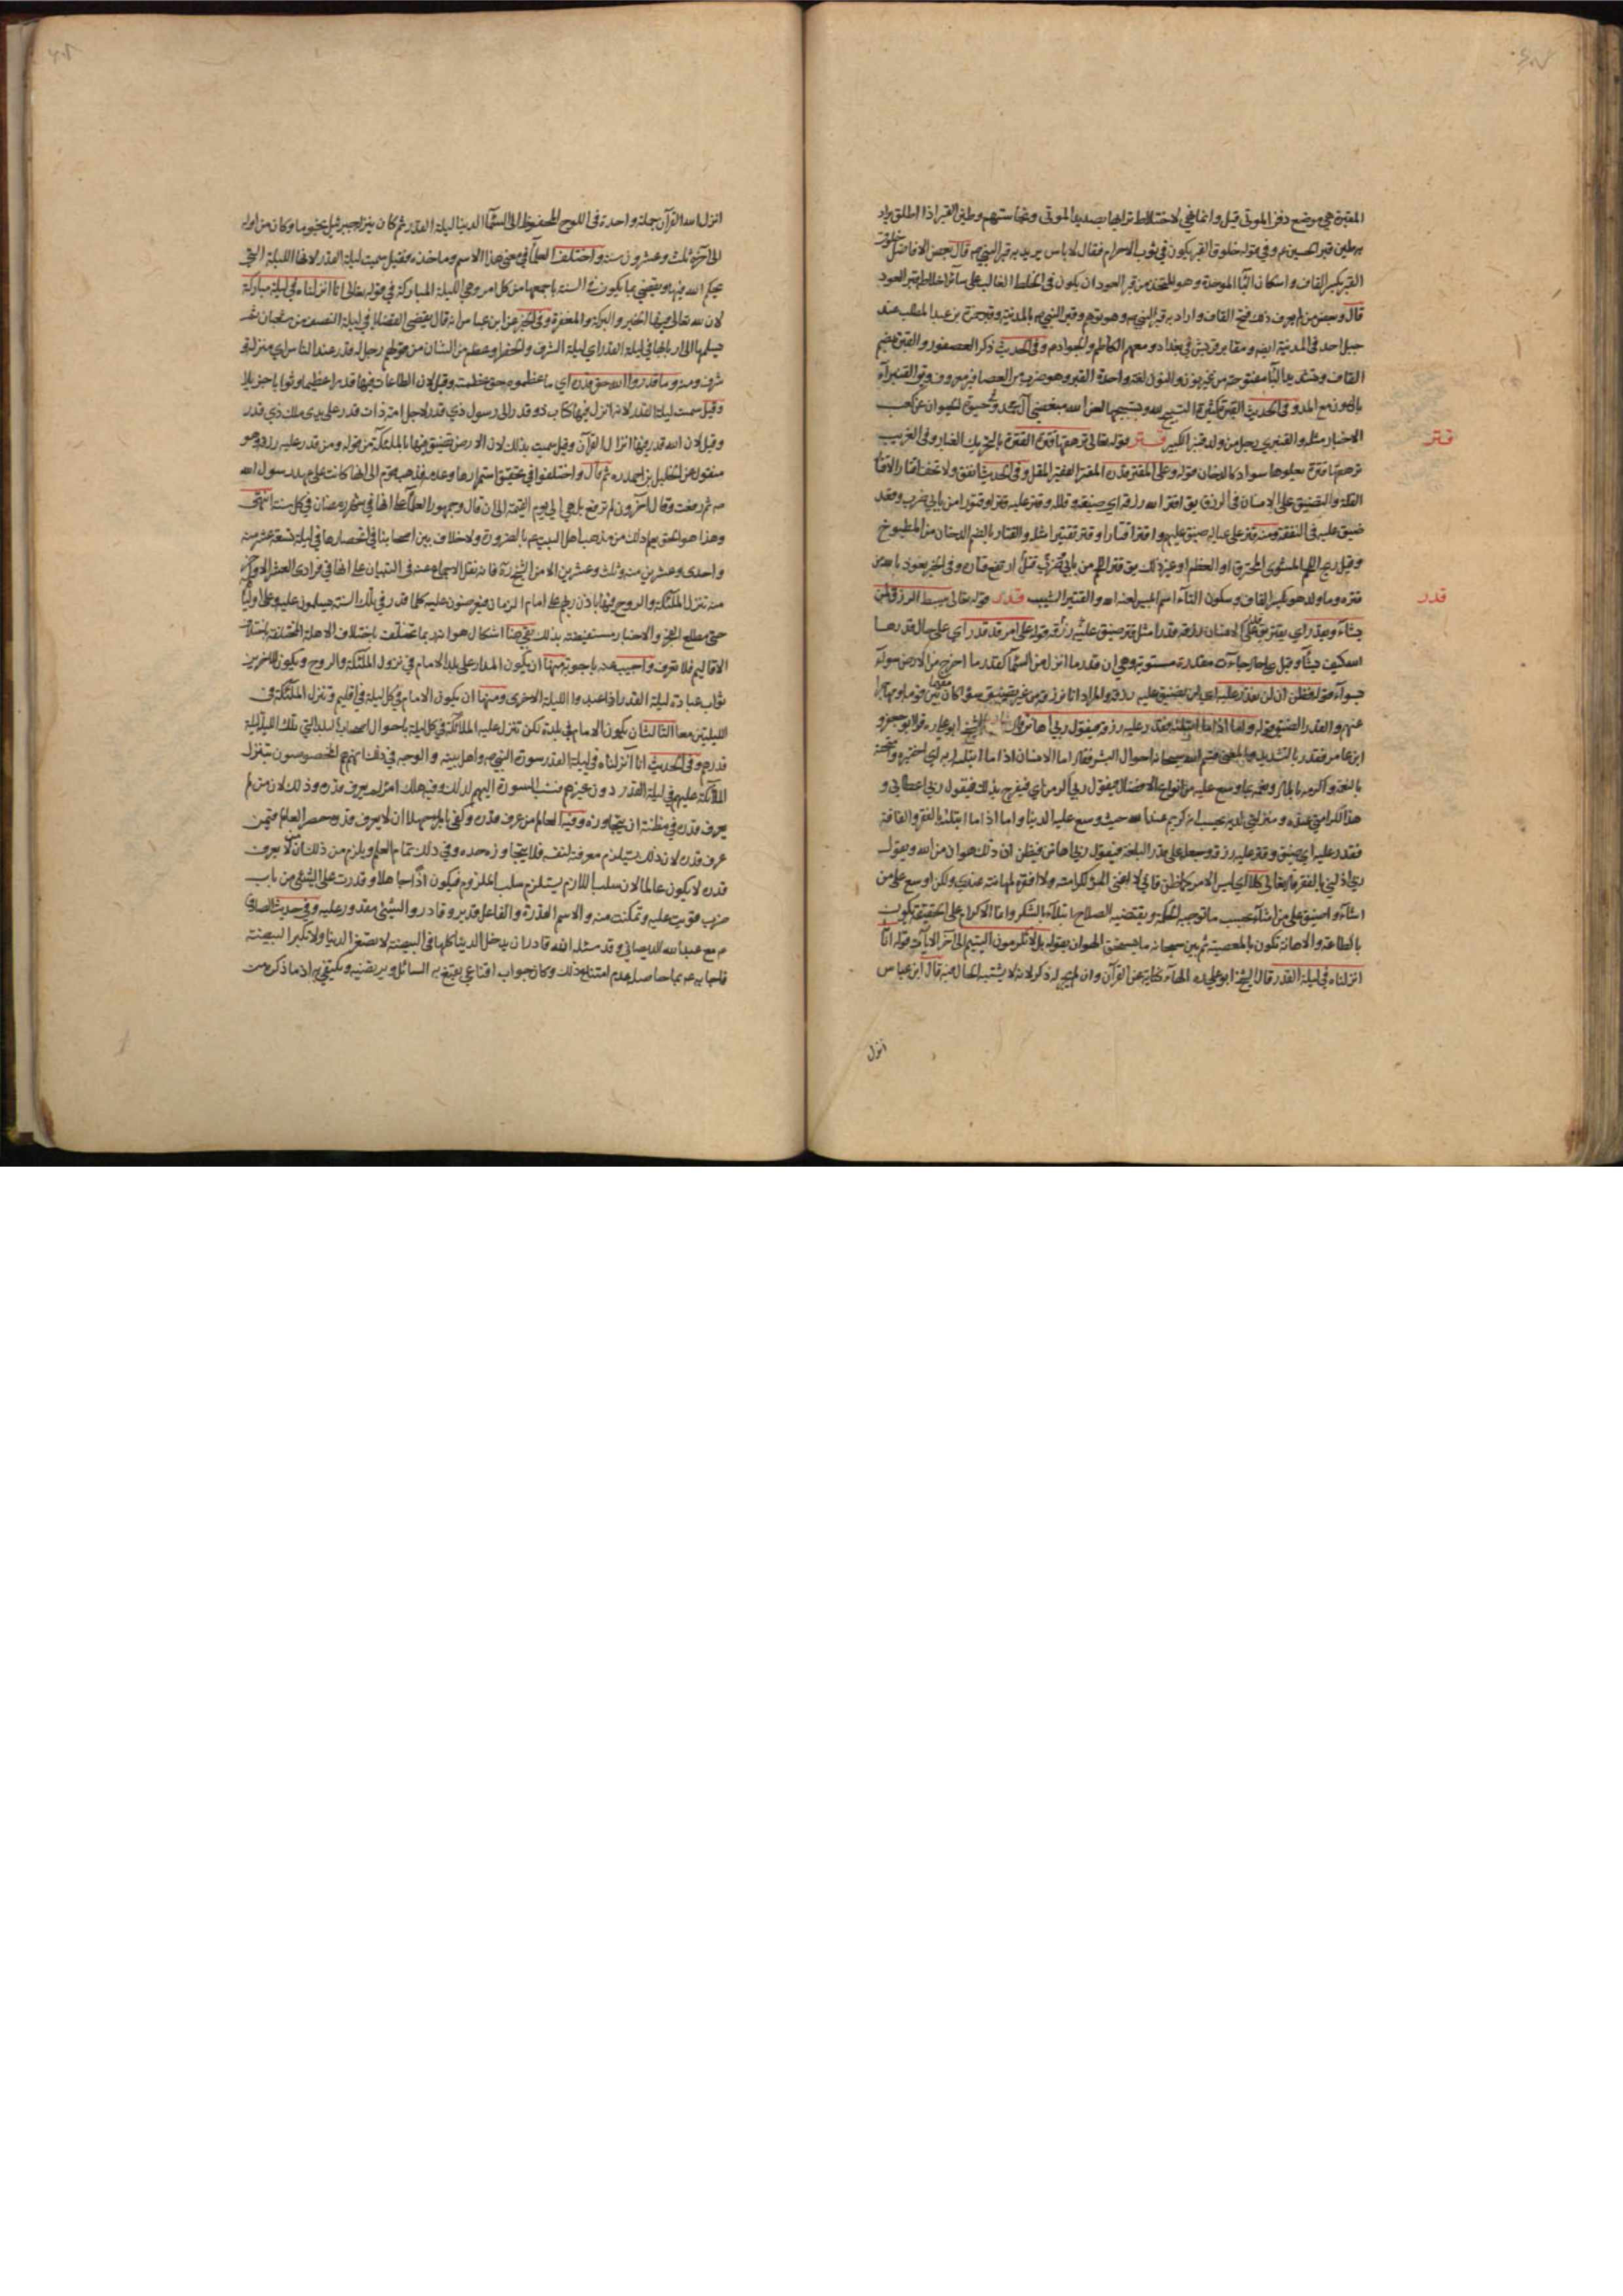 المقبرة هي موضع دفن الموتى قيل وانما هي لاختلاط ترابها بصديد الموتى ونجاستهم وطين القبر اذا اطلق يراد
به طين قبر الحسين ع وفي قوله خلوق القبر يكون في ثوب الاحرام فقال لا باس به يريد به قبر النبي ص قال بعض الافاضل خلوق
القبر بكسر القاف واسكان الباء الموحدة وهو المتخذ من قبر العود ان يكون في الخلط الغالب على سائر اخلاطه قبر العود
قال وبعض من لم يعرف ذلك فتح القاف واراد به قبر النبي ص وهو توهم وقبر النبي ص بالمدينة وقبر حمزة بن عبد المطلب عند
جبل احد في المدينة ايضا ومقابر قريش في بغداد ومعهم الكاظم والجواد ع وفي الحديث ذكر العصفور والقبرة بضم
القاف وتشديد الباء مفتوحة من غير نون والنون لغة واحدة القبر وهو ضرب من العصافير معروف ويق القنبراء
بالنون مع المد وفي الحديث القبرة كثيرة التسبيح لله وتسبيحها لعن الله مبغضي آل محمد وفي حيوة الحيوان عن كعب
الاحبار مثله والقنبري رجل من ولد قنبر الكبير قتر قوله تعالى ترهقها قترة القترة بالتحريك الغبار وفي الغريب
ترهقها قترة يعلوها سواد كالدخان قوله وعلى المقتر قدره المقتر الفقير المقل وفي الحديث انفق ولا تخف اقتارا الاقتار
القلة والتضييق على الانسان في الرزق يق اقتر الله رزقه اي ضيقه وقلله وقتر عليه قترا وقتورا من بابي ضرب وقعد
ضيق عليه في النفقة ومنه قتر على عياله ضيق عليهم واقتر اقتارا وقتر تقتيرا مثله والقتار بالضم الدخان من المطبوخ
وقيل ريح اللحم المشوي المحترق او العظم او غير ذلك يق قتر اللحم من بابي ضرب وقتل ارتفع قتاره وفي الخبر نعوذ بالله من
قترة وما ولد هو بكسر القاف وسكون التاء اسم ابليس لعنه الله والقتير الشيب قدر قوله تعالى يبسط الرزق لمن
يشاء ويقدر اي يقتر يق قدر على الانسان رزقه قدرا مثل قتر ضيق عليه رزقه قوله على امر قد قدر اي على حال قدرها
الله كيف يشاء وقيل على حال جاءت مقدرة مستوية وهي ان قدر ما انزل من السماء كقدر ما اخرج من الارض سواء
بسواء قوله فظن ان لن نقدر عليه اي لن نضيق عليه رزقه والمراد انا نرزقه من غير تضييق سواء كان مقيما بين قومه او مهاجرا
عنهم والقدر الضيق قوله واما اذا ما ابتلاه فقدر عليه رزقه فيقول ربي اهانن قال الشيخ ابو علي ره قرا ابو جعفر و
ابن عامر فقدر بالتشديد
بالنعم واكرمه بالمال ونعمه بما وسع عليه من انواع الافضال فيقول ربي اكرمن اي فيفرح بذلك فيقول ربي اعطاني
هذا لكرامتي عنده ومنزلتي لديه يحسب انه كريم عند الله حيث وسع عليه الدنيا واما اذا ما ابتلاه بالفقر والفاقة
فقدر عليه اي ضيق وقتر عليه رزقه وجعله على قدر البلغة فيقول ربي اهانن فيظن ان ذلك هوان من الله ويقول
ربي اذلني بالفقر فقال تعالى كلا اي ليس الامر كما ظن فاني لا اغني المرء لكرامته ولا افقره لمهانته عندي ولكن اوسع على من
اشاء واضيق على من اشاء بحسب ما توجبه الحكمة ويقتضيه الصلاح ابتلاء بالشكر وانما الاكرام على الحقيقة يكون
بالطاعة والاهانة تكون بالمعصية ثم بين سبحانه ما يستحق الهوان بقوله بل لا تكرمون اليتيم الى آخر الآيات قوله انا
انزلناه في ليلة القدر قال الشيخ ابو علي ره الهاء كناية عن القرآن وان لم يجر له ذكر لانه لا يشتبه الحال فيه قال ابن عباس
انزل
قتر
قدر
انزل الله القرآن جملة واحدة في اللوح المحفوظ الى السماء الدنيا ليلة القدر ثم كان ينزله جبرئيل نجوما وكان من اوله
الى آخره ثلث وعشرون سنة واختلف العلماء في معنى هذا الاسم وماخذه فقيل سميت ليلة القدر لانها الليلة التي
يحكم الله فيها ويقضي بما يكون في السنة باجمعها من كل امر وهي الليلة المباركة في قوله تعالى انا انزلناه في ليلة مباركة
لان لله تعالى فيها الخير والبركة والمغفرة وفي الخبر عن ابن عباس انه قال يقضى القضايا في ليلة النصف من شعبان ثم
يسلمها الى اربابها في ليلة القدر اي ليلة الشرف والخطر وعظم من الشان من قولهم رجل له قدر عند الناس اي منزلة و
شرف ومنه وما قدروا الله حق قدره اي ما عظموه حق عظمته وقيل لان الطاعات فيها قدرا عظيما وثوابا جزيلا
وقيل سميت ليلة القدر لانه انزل فيها كتاب ذو قدر الى رسول ذي قدر لاجل امة ذات قدر على يدي ملك ذي قدر
وقيل لان الله قدر فيها انزال القرآن وقيل سميت بذلك لان الارض تضيق فيها بالملئكة من قوله ومن قدر عليه رزقه وهو
منقول عن الخليل بن احمد ره ثم قال واختلفوا في تحقيق استمرارها وعدمه فذهب قوم الى انها كانت على عهد رسول الله
ص ثم رفعت وقال آخرون لم ترفع بل هي الى يوم القيمة الى ان قال وجمهور العلماء على انها في شهر رمضان في كل سنة انتهى
وهذا هو الحق يعلم ذلك من مذهب اهل البيت ع بالضرورة ولا خلاف بين اصحابنا في انحصارها في ليلة تسعة عشر منه
واحدى وعشرين منه وثلث وعشرين الا من الشيخ ره فانه نقل الاجماع عنه في التبيان على انها في فرادى العشر الاواخر
منه تنزل الملئكة والروح فيها باذن ربهم على امام الزمان فيعرضون عليه كلما قدر في تلك السنة ويسلمون عليه وعلى اوليائه
حتى مطلع الفجر والاخبار مستفيضة بذلك بقي هنا اشكال هو انه ربما تختلف باختلاف الاهلة المختلفة باختلاف
الاقاليم فلا تعرف واجيب عنه باجوبة منها ان يكون المدار على بلد الامام في نزول الملئكة والروح ويكون للاخرين
ثواب عبادة ليلة القدر اذا عبدوا الليلة الاخرى ومنها ان يكون الامام في كل ليلة في اقليم وتنزل الملئكة في
الليلتين معا الثالث ان يكون الامام في بلدة لكن تنزل عليه الملائكة في كل ليلة باحوال اصحاب البلد التي تلك الليلة ليلة
قدرهم وفي الحديث انا انزلناه في ليلة القدر سورة النبي ص واهل بيته والوجه في ذلك انهم هم المخصوصون بتنزل
الملائكة عليهم في ليلة القدر دون غيرهم فنسب السورة اليهم لذلك وفيه هلك امرؤ لم يعرف قدره وذلك لان من لم
يعرف قدره في مظنة ان يتجاوزه وفيه العالم من عرف قدره وكفى بالمرء جهلا ان لا يعرف قدره حصر العالم فيمن
عرف قدره لان ذلك يستلزم معرفته لنفسه فلا يتجاوز حده وفي ذلك تمام العلم ويلزم من ذلك ان من لا يعرف
قدره لا يكون عالما لان سلب اللازم يستلزم سلب الملزوم فيكون اذا جاهلا وقدرت على الشيء من باب
ضرب قويت عليه وتمكنت منه والاسم القدرة والفاعل قدير وقادر والشيء مقدور عليه وفي حديث الصادق
ع مع عبد الله الديصاني وقد سئله الله قادر ان يدخل الدنيا كلها في البيضة لا تصغر الدنيا ولا تكبر البيضة
فاجابه ع بما حاصله عدم امتناع ذلك وكان جواب اقناعي يقنع به السائل ويرتضيه ويكتفي به اذ ما ذكره من